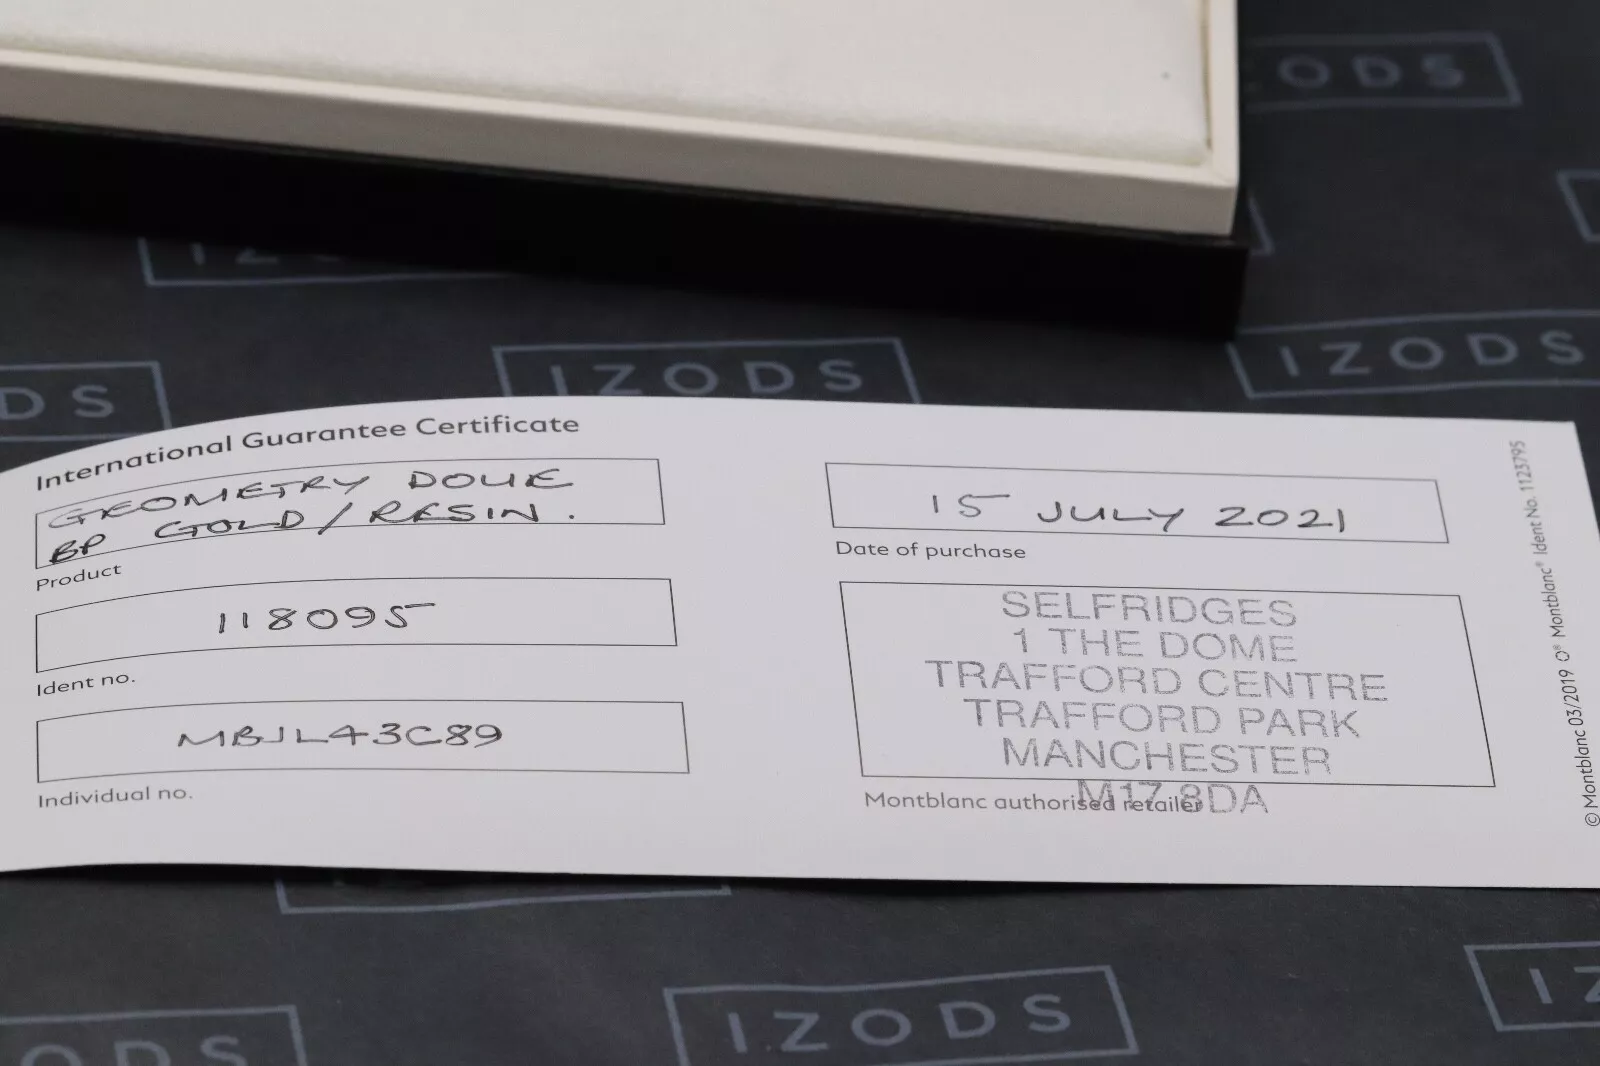 ODS
IZODS
IZODS
DS
International Guarantee Certificate
GEOMETRY DOUE
BP GOLD/RESIN.
Product
118095
Ident no.
MBJL43C89
Individual no.
15 JULY 2021
Date of purchase
SELFRIDGES
1 THE DOME
TRAFFORD CENTRE
TRAFFORD PARK
MANCHESTER
M17 8DA
Montblanc authorised retailer
© Montblanc 03/2019 O® Montblanc® Ident No. 1123795
IZODS
IZ
ODS